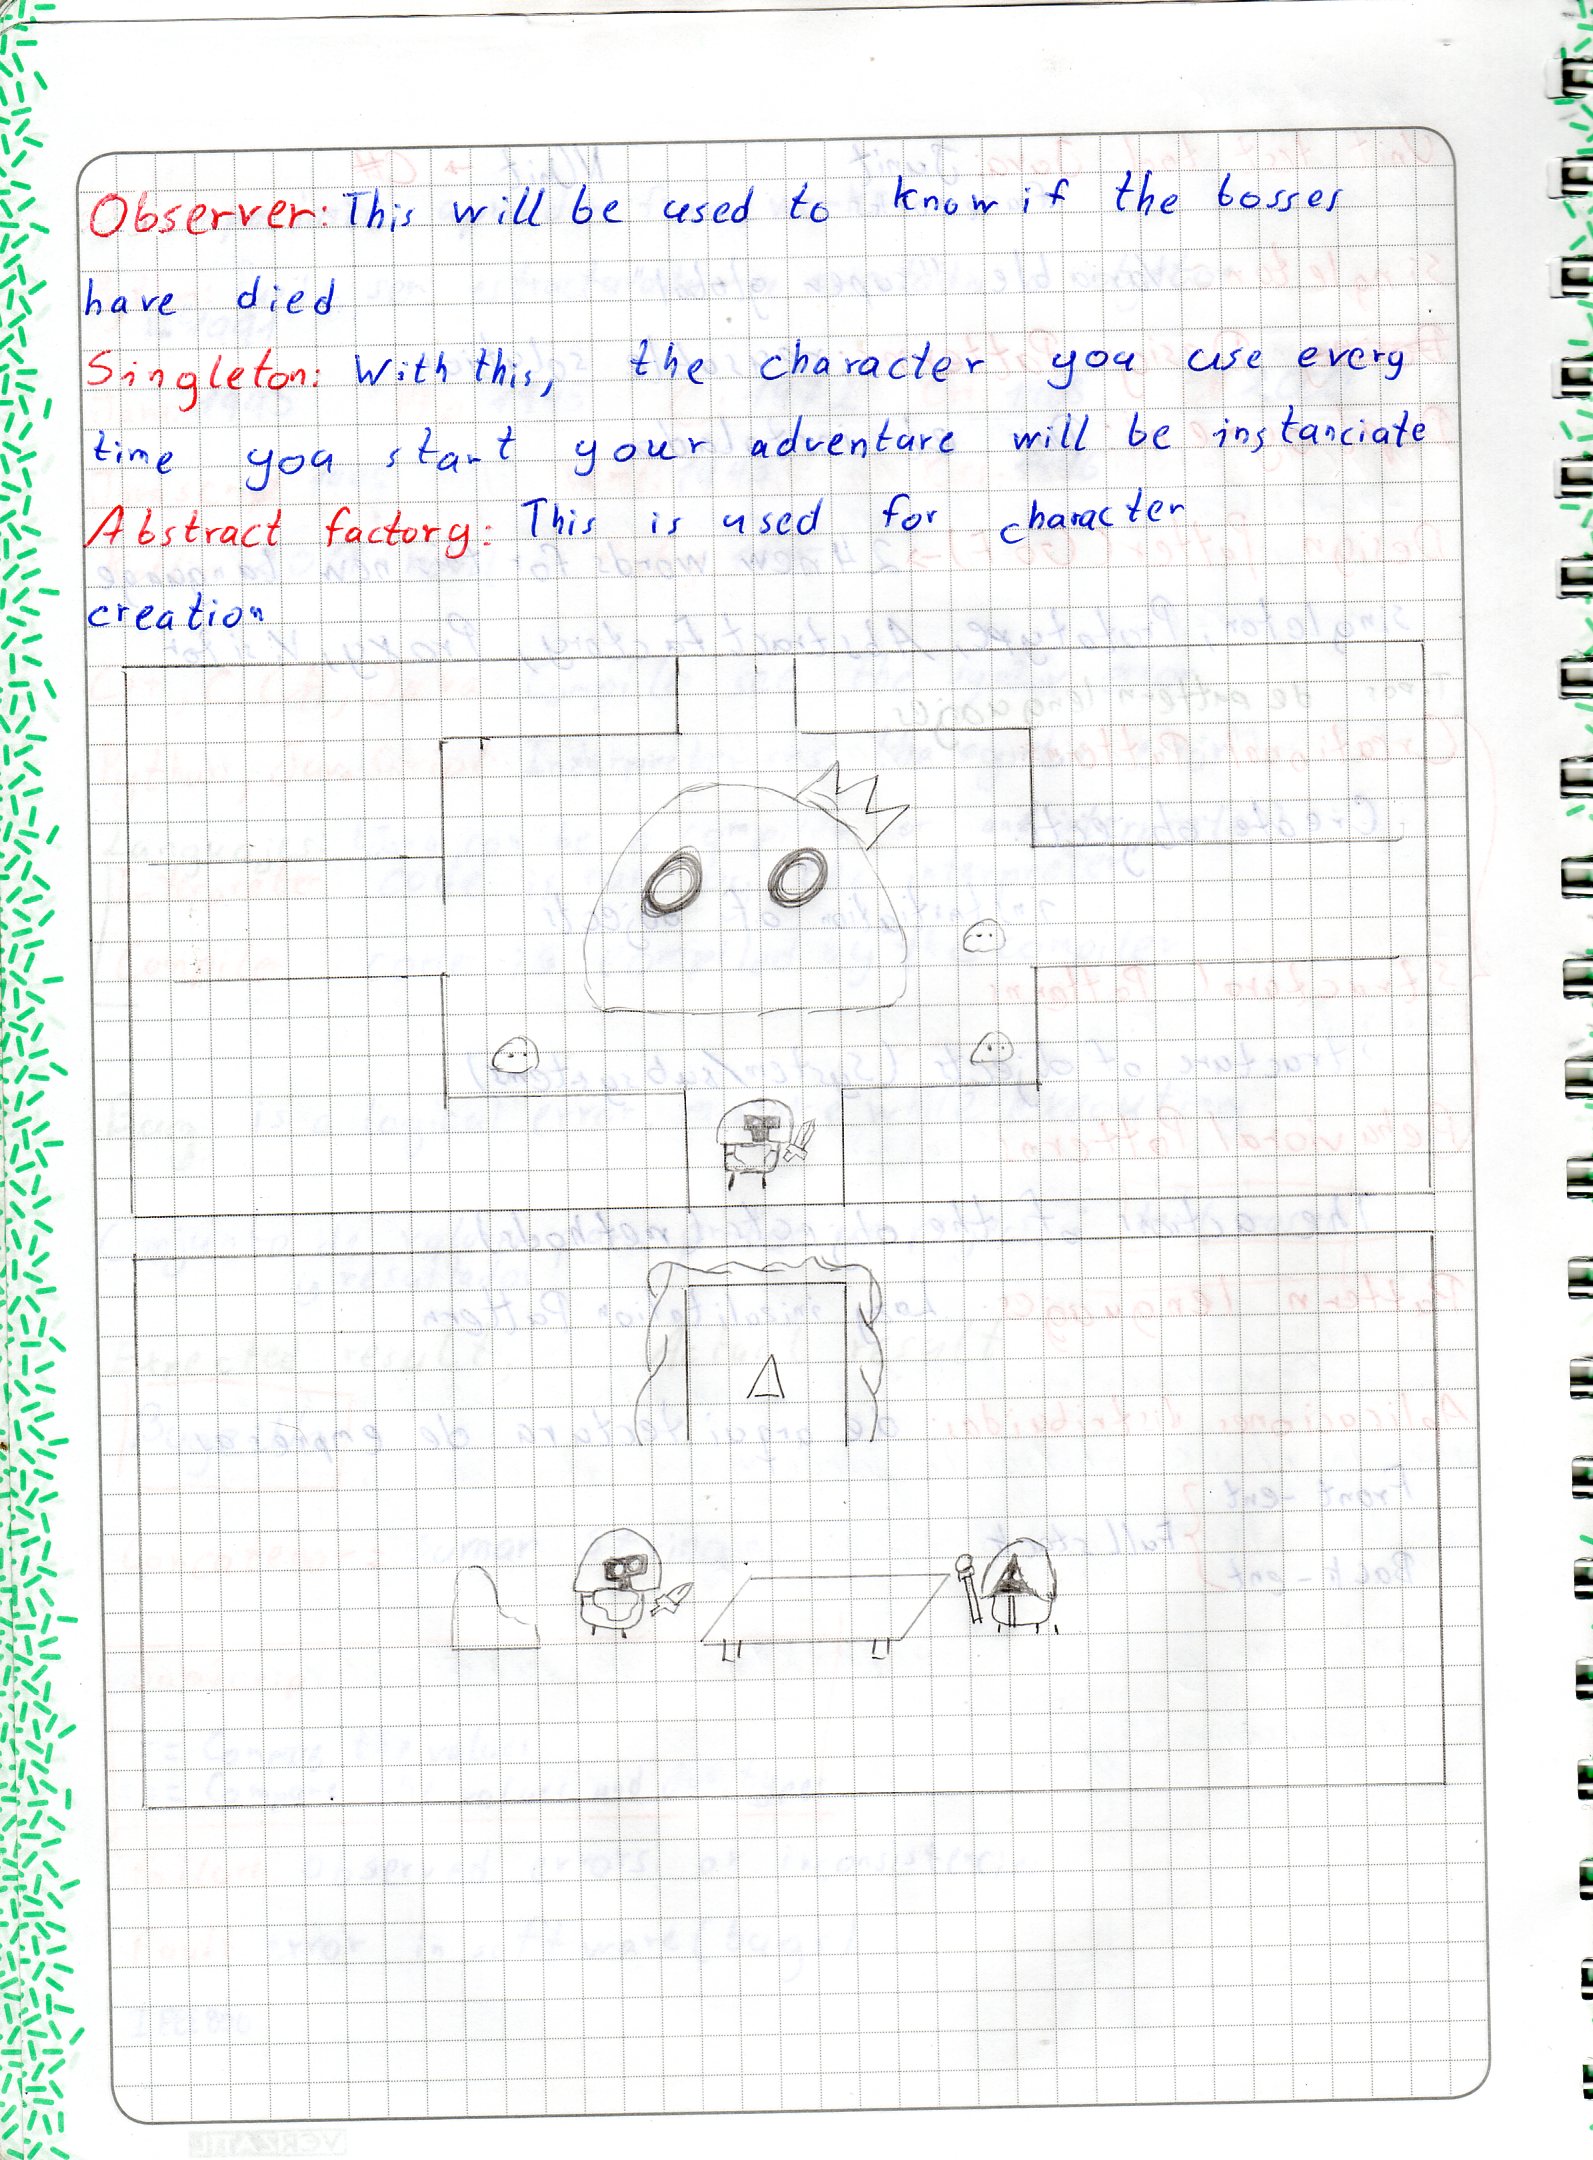 Observer: This will be used to know if the bosses
have died
Singleton: With this, the character you use every
time you start your adventure will be instanciate
Abstract factory: This is used for character
creation